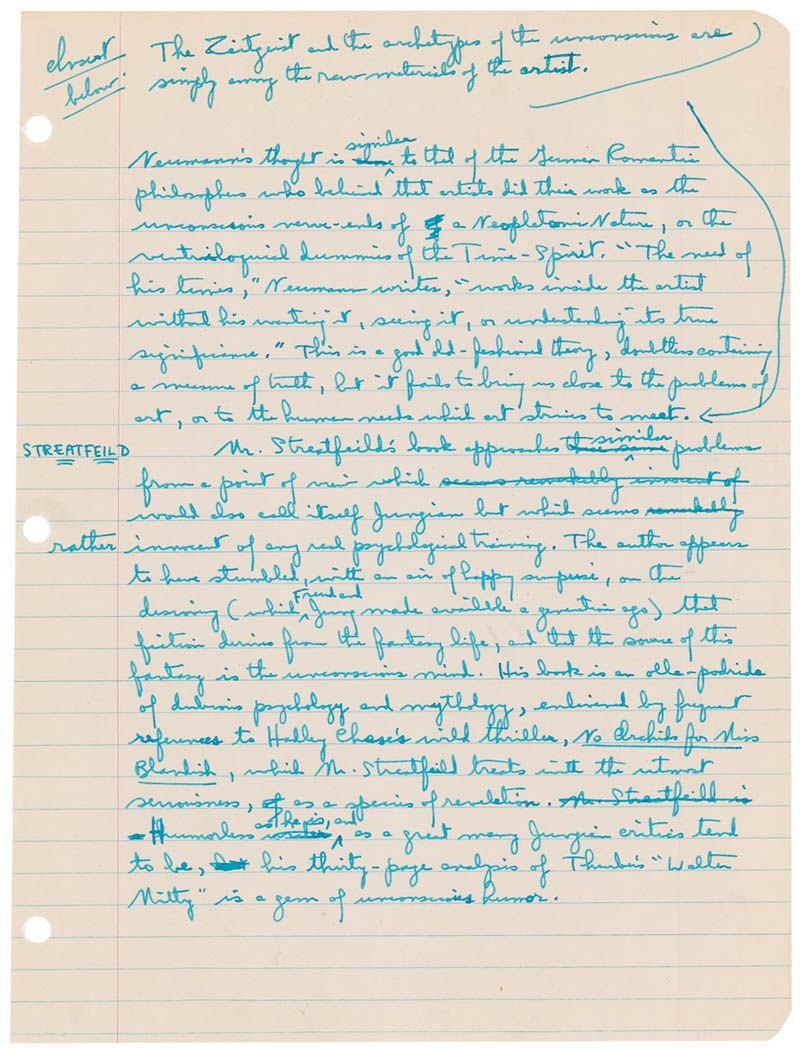 Insert
below:
The Zeitgeist and the archetypes of the unconscious are
simply among the raw materials of the artist.
Neumann's thought is similar to that of the German Romantic
philosophers who believed that artists did their work as the
unconscious nerve-ends of a Neoplatonic Nature, or the
ventriloquial dummies of the Time-Spirit. "The need of
his times," Neumann writes, "works inside the artist
without his wanting it, seeing it, or understanding its true
significance." This is a good old-fashioned theory, doubtless containing
a measure of truth, but it fails to bring us close to the problems of
art, or to the human needs which art strives to meet.
STREATFEILD
Mr. Streatfeild's book approaches these same similar problems
from a point of view which seems remarkably innocent of
would also call itself Jungian but which seems remarkably
rather innocent of any real psychological training. The author appears
to have stumbled, with an air of happy surprise, on the
discovery (which Freud and Jung made available a generation ago) that
fiction derives from the fantasy life, and that the source of this
fantasy is the unconscious mind. His book is an olla-podrida
of dubious psychology and mythology, enlivened by frequent
references to Hadley Chase's wild thriller, No Orchids for Miss
Blandish, which Mr. Streatfeild treats with the utmost
seriousness, as a species of revelation. Mr. Streatfeild is
a Humorless writer as he is, and as a great many Jungian critics tend
to be, but his thirty-page analysis of Thurber's "Walter
Mitty" is a gem of unconscious humor.